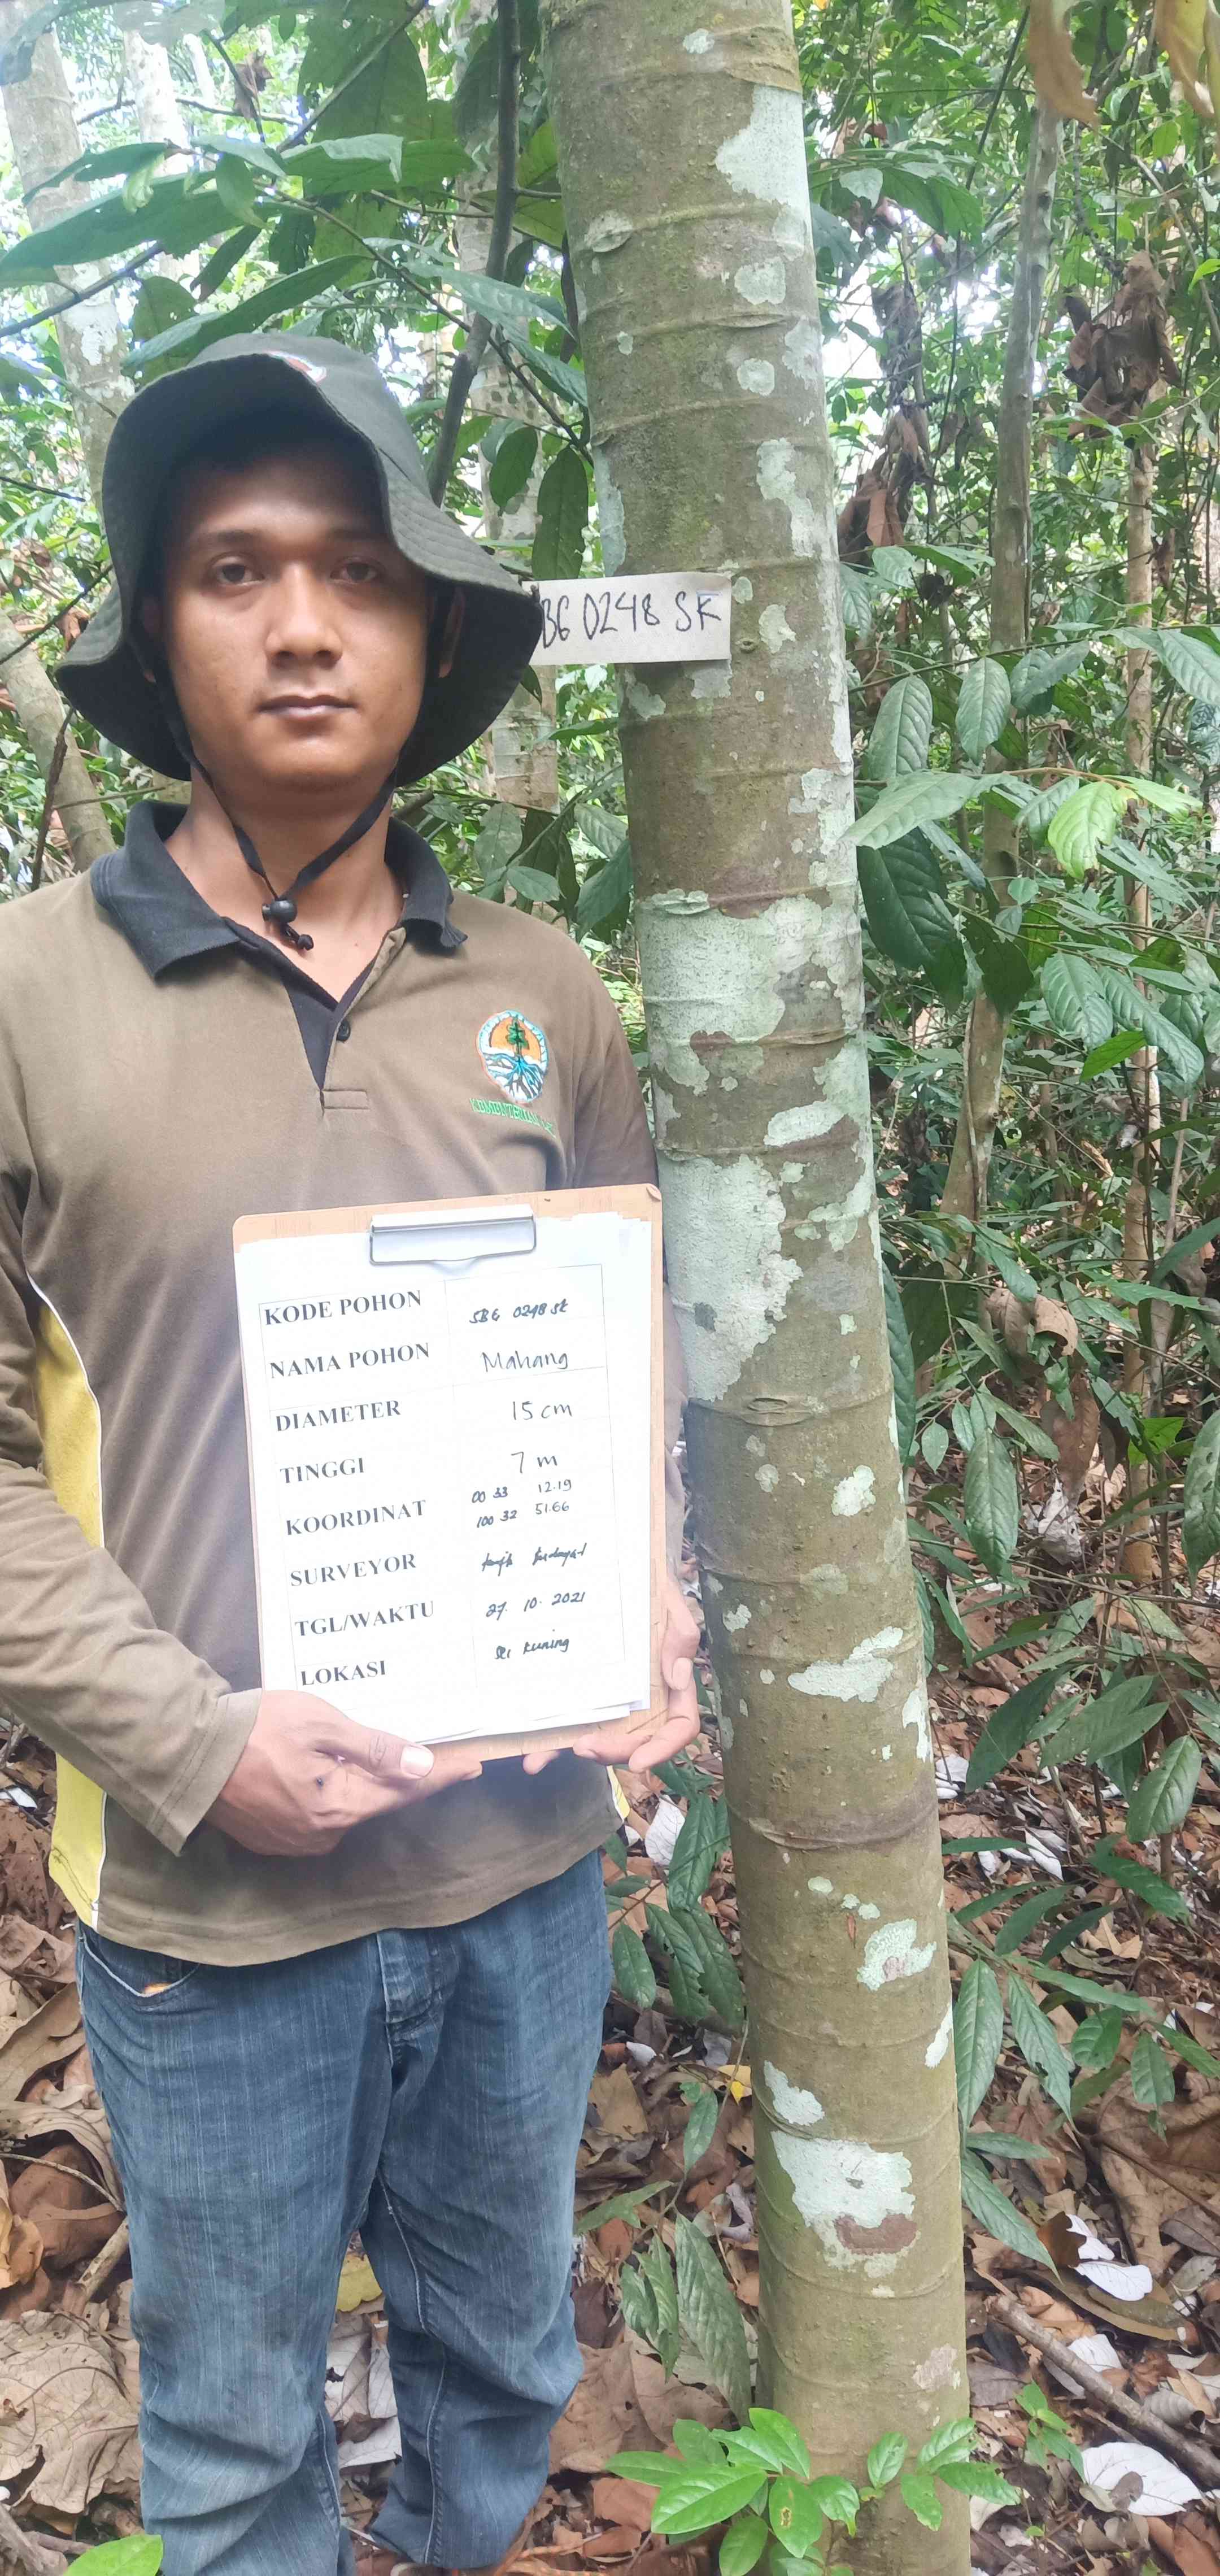 BG 0248 SK
KODE POHON SBG 0248 SK
NAMA POHON Mahang
DIAMETER 15 cm
TINGGI 7 m
KOORDINAT 00 33 12.19
100 32 51.66
SURVEYOR
TGL/WAKTU 27. 10. 2021
LOKASI Sei Kuning